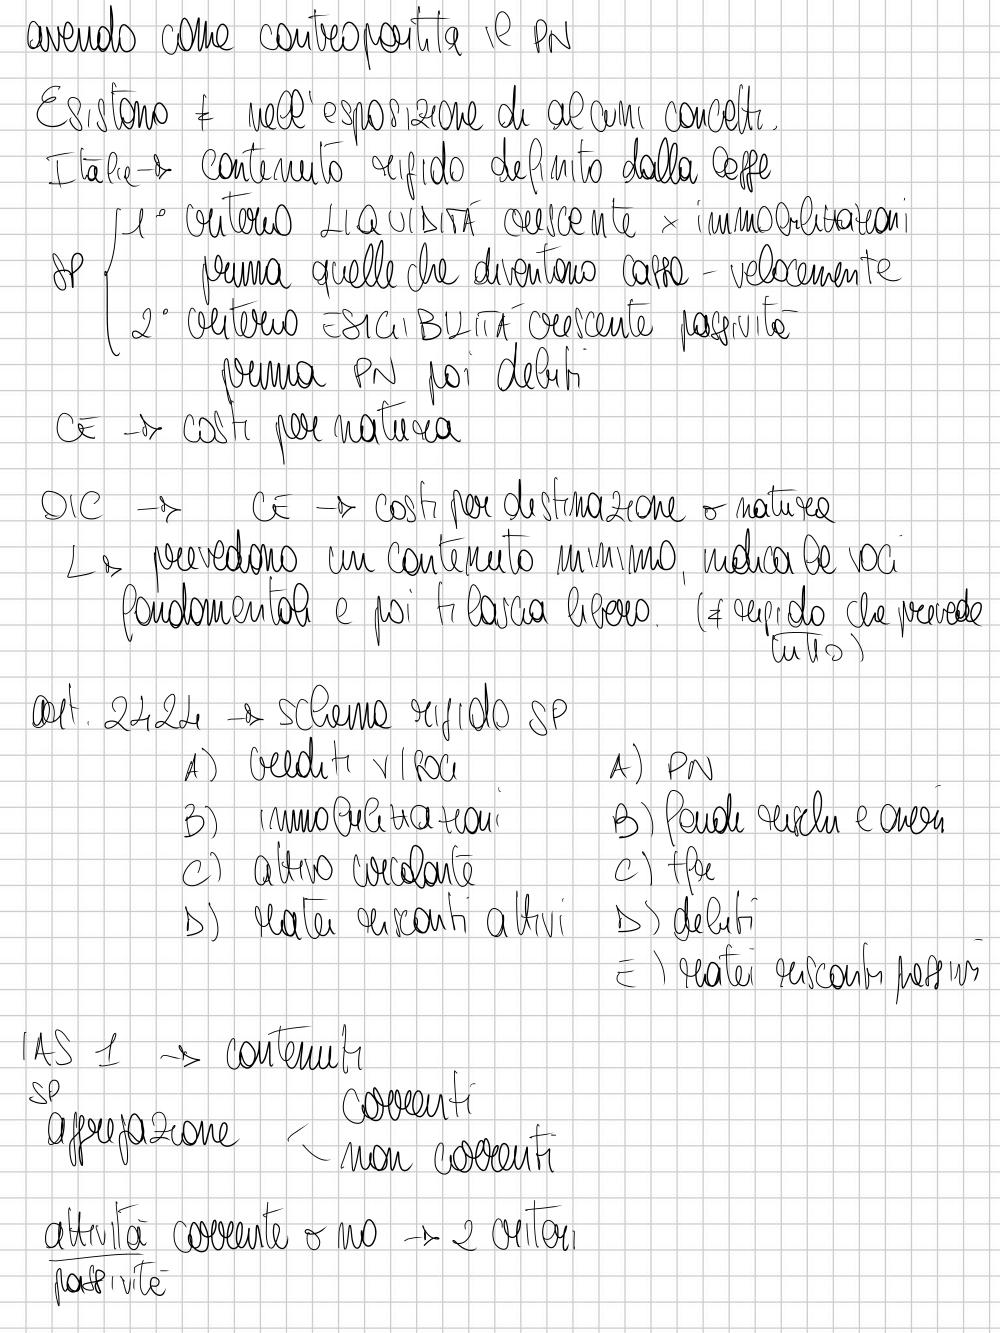 avendo come contropartita il PN
Esistono ≠ nell'esposizione di alcuni concetti.
Italia → contenuto rigido definito dalla legge
1° criterio LIQUIDITÁ crescente x immobilizzazioni
SP prima quelle che diventano cassa - velocemente
2° criterio ESIGIBILITÁ crescente passività
prima PN poi debiti
CE → costi per natura
OIC → CE → costi per destinazione o natura
L> prevedono un contenuto minimo, indica le voci
fondamentali e poi ti lascia libero. (≠ rigido che prevede
tutto)
art. 2424 → schema rigido SP
A) crediti v/soci A) PN
B) immobilizzazioni B) fondi rischi e oneri
C) attivo circolante C) tfr
D) ratei risconti attivi D) debiti
E) ratei risconti passivi
IAS 1 → contenuti
SP correnti
aggregazione <
non correnti
attività corrente o no → 2 criteri
passività